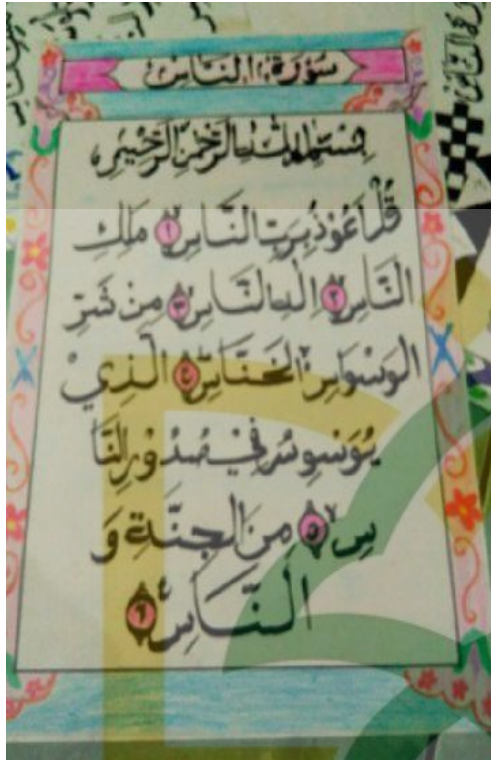 سُوْرَةُ النَّاسِ
بِسْمِ اللهِ الرَّحْمٰنِ الرَّحِيْمِ
قُلْ اَعُوْذُ بِرَبِّ النَّاسِ ١ مَلِكِ
النَّاسِ ٢ اِلٰهِ النَّاسِ ٣ مِنْ شَرِّ
الْوَسْوَاسِ الْخَنَّاسِ ٤ الَّذِيْ
يُوَسْوِسُ فِيْ صُدُوْرِ النَّا
سِ ٥ مِنَ الْجِنَّةِ وَ
النَّاسِ ٦